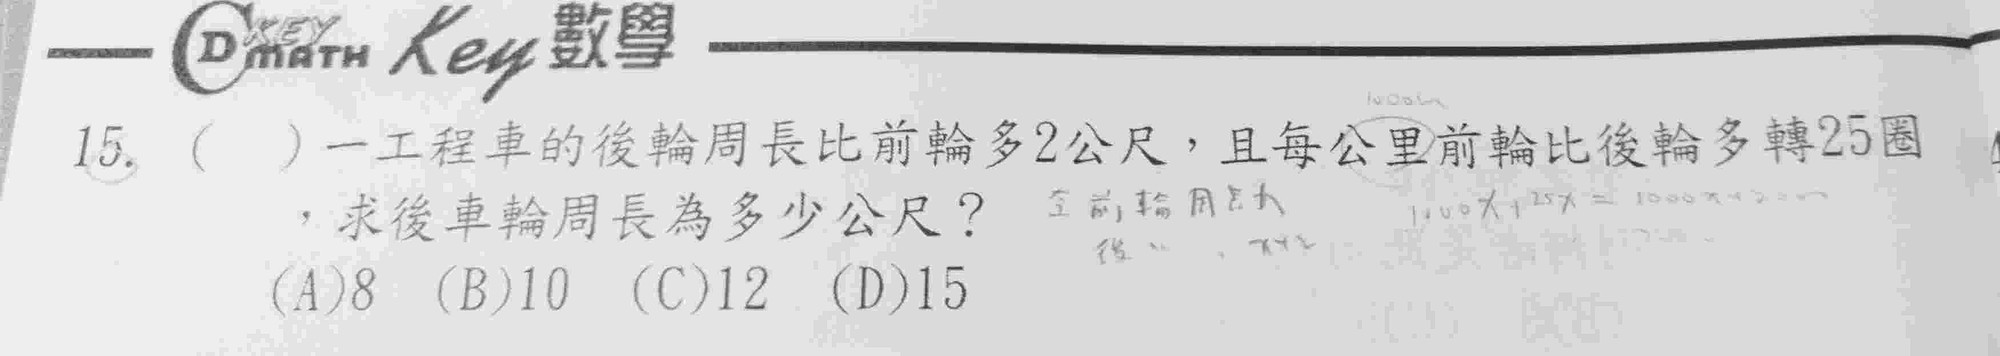 KEY MATH CD Key數學
1000m
15. ( ) 一工程車的後輪周長比前輪多2公尺，且每公里前輪比後輪多轉25圈
，求後車輪周長為多少公尺？
前輪周長x
後〃 , x+2
1000x+25x=1000x+2000
(A)8 (B)10 (C)12 (D)15